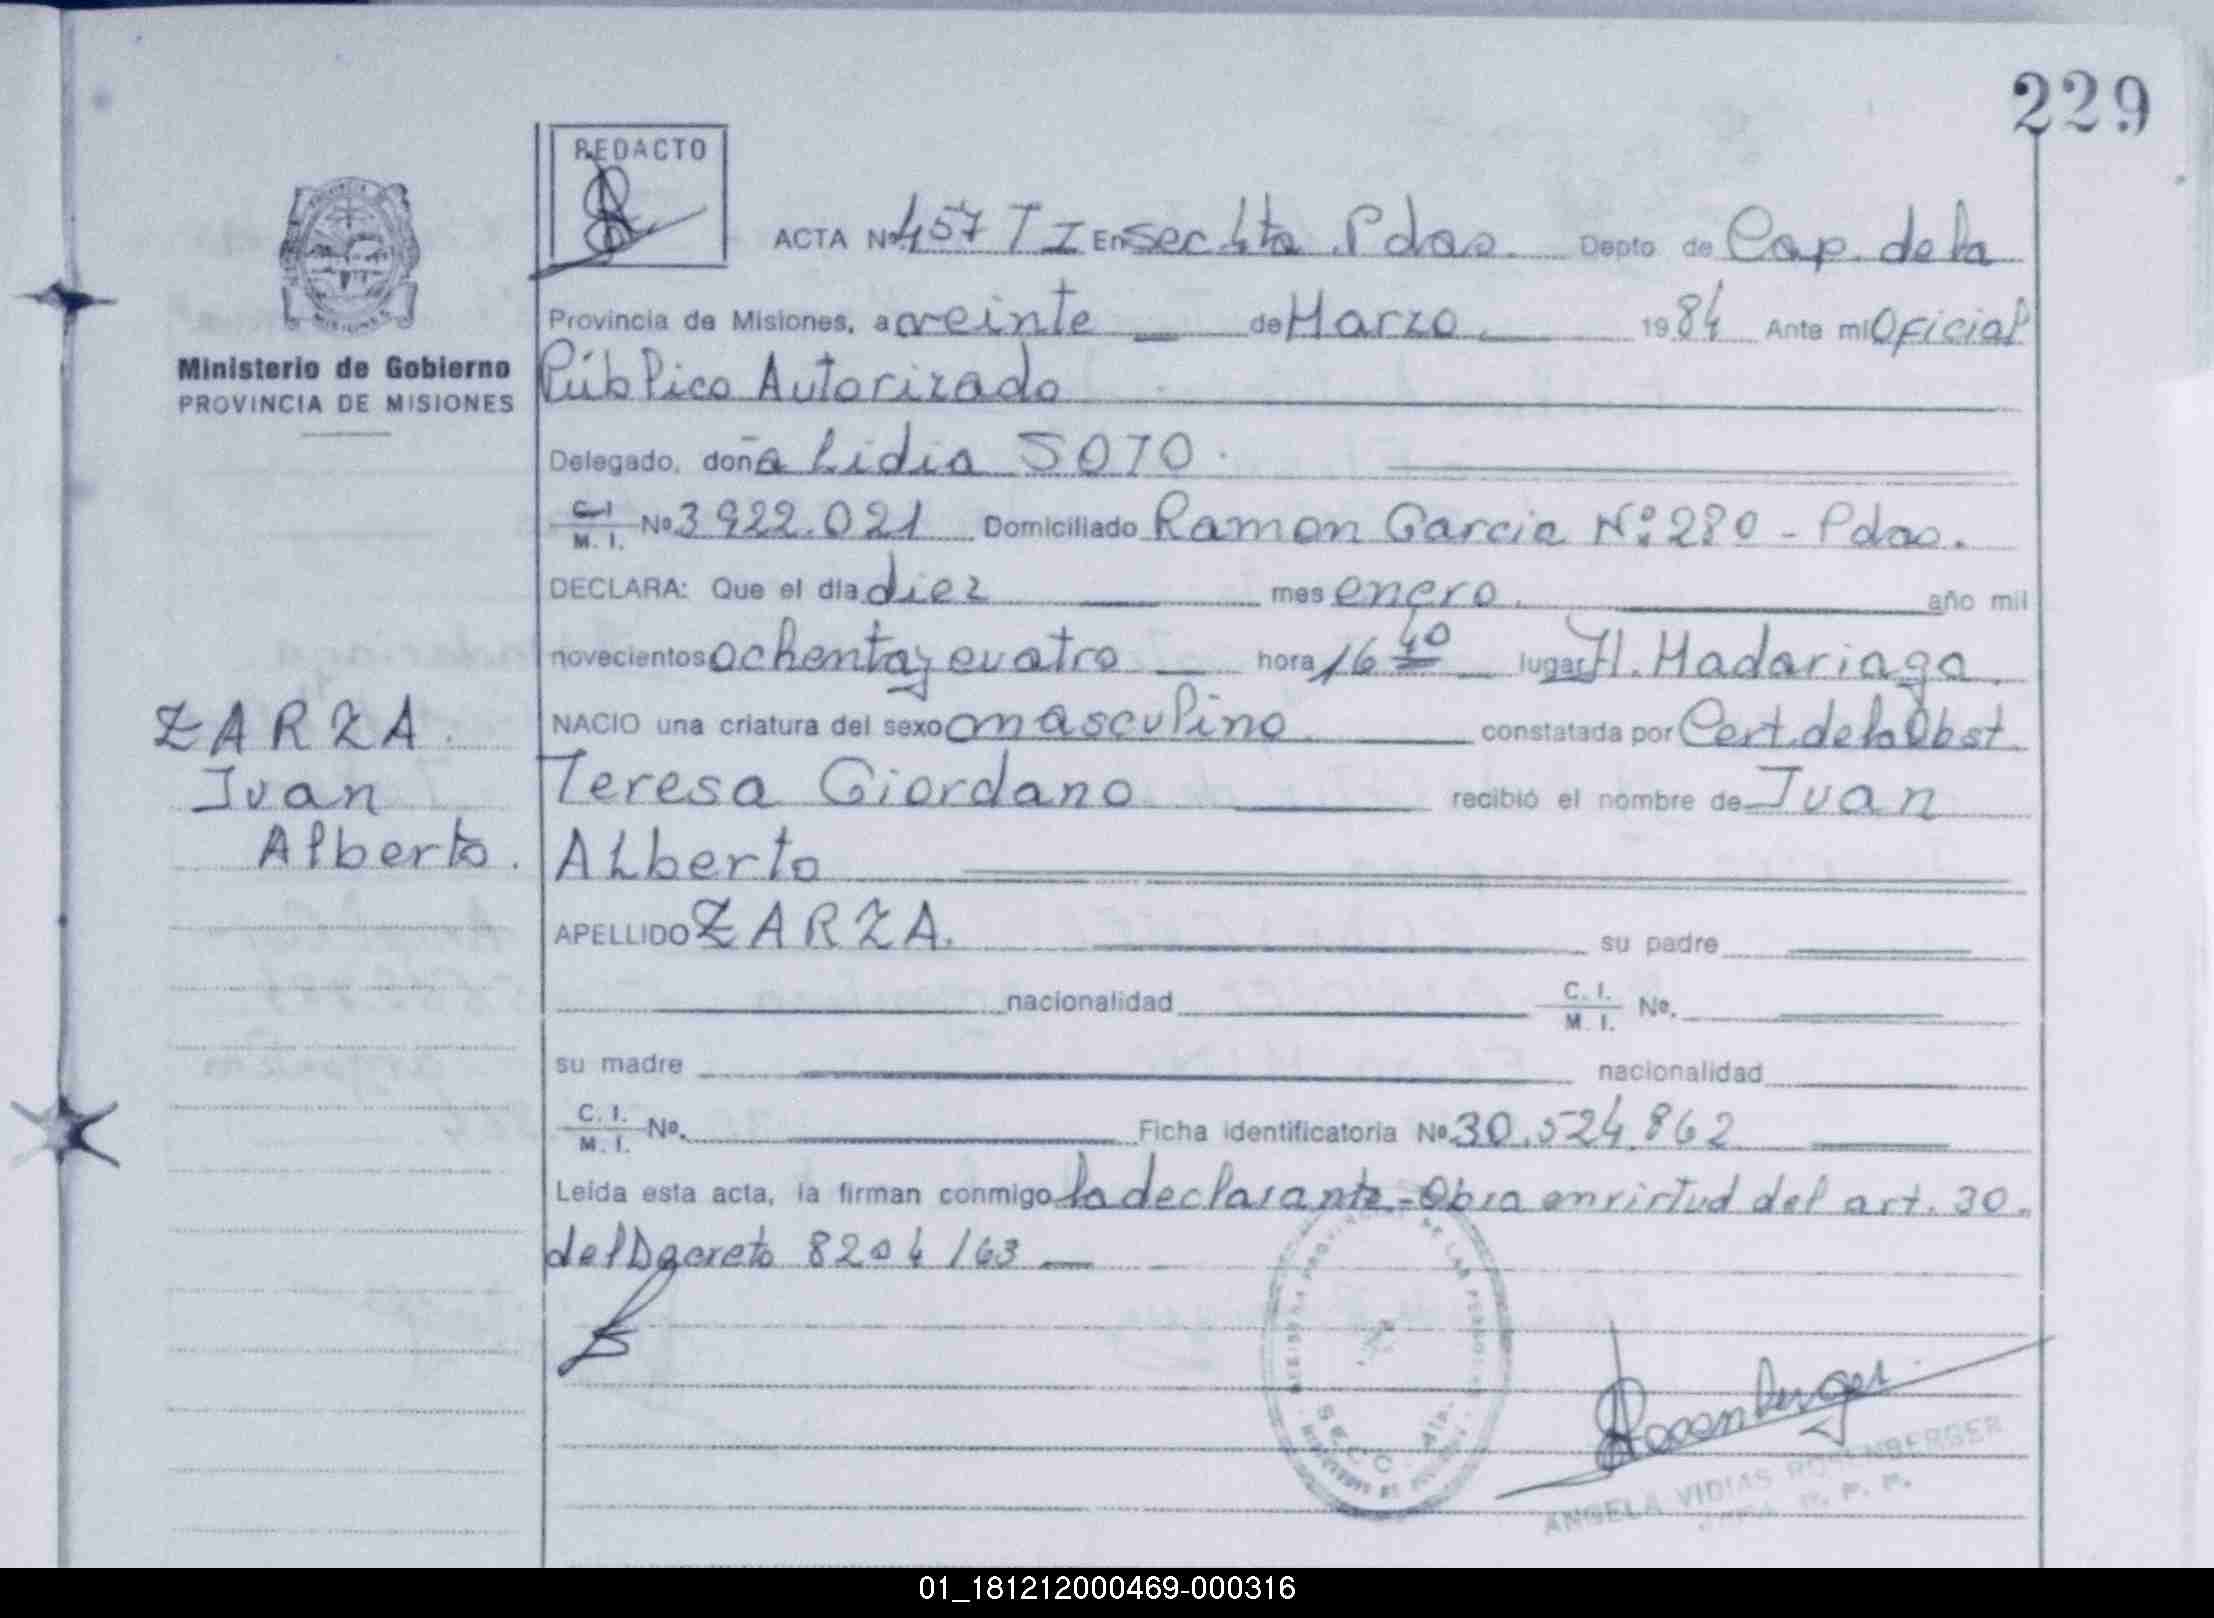 229
REDACTO
ACTA Nº 457 T I En sec 4ta Pdas. Depto de Cap. de la
Provincia de Misiones, a veinte de Marzo 1984 Ante mi Oficial
Ministerio de Gobierno
PROVINCIA DE MISIONES
Público Autorizado
Delegado, doña Lidia SOTO.
C.I. M. I. Nº 3922.021 Domiciliado Ramon Garcia Nº: 280 - Pdas.
DECLARA: Que el dia diez mes enero. año mil
novecientos ochenta y cuatro hora 16 40 lugar H. Madariaga.
NACIO una criatura del sexo masculino constatada por Cert. de la Obst.
Teresa Giordano recibió el nombre de Juan
Alberto
ZARZA.
Juan
Alberto.
APELLIDO ZARZA. su padre
nacionalidad C. I. M. I. Nº.
su madre nacionalidad
C. I. M. I. Nº. Ficha identificatoria Nº 30.524.862
Leída esta acta, la firman conmigo la declarante.- Obra en virtud del art. 30.
del Decreto 8204/63
SECC. 4ta.
Rosenberger
ANGELA VIDIAS ROSENBERGER
01_181212000469-000316